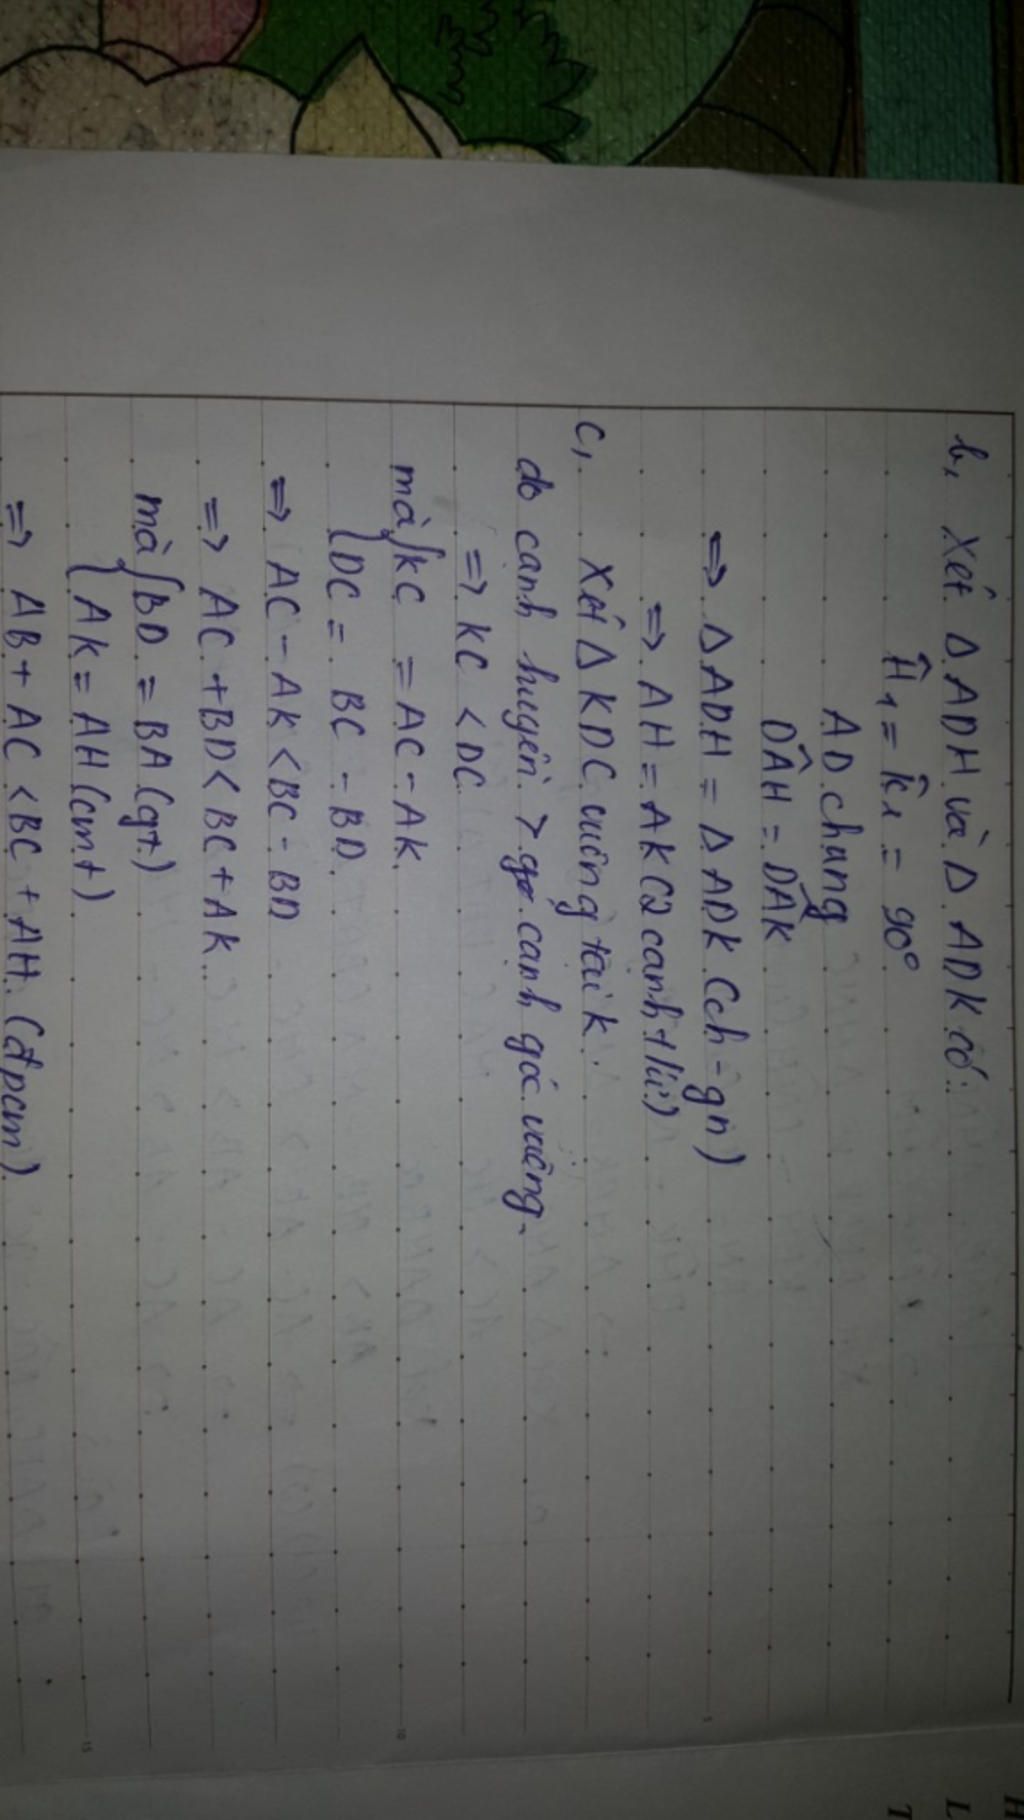 b, Xét Δ ADH và Δ ADK có:
Ĥ₁ = K̂₁ = 90°
AD chung
DÂH = DÂK
=> Δ ADH = Δ ADK (ch - gn)
=> AH = AK (2 cạnh t/ứ)
c, Xét Δ KDC vuông tại K.
do cạnh huyền > cạnh góc vuông.
=> KC < DC.
mà { KC = AC - AK.
{ DC = BC - BD.
=> AC - AK < BC - BD
=> AC + BD < BC + AK.
mà { BD = BA (gt)
{ AK = AH (cmt)
=> AB + AC < BC + AH. (đpcm)
5
10
15